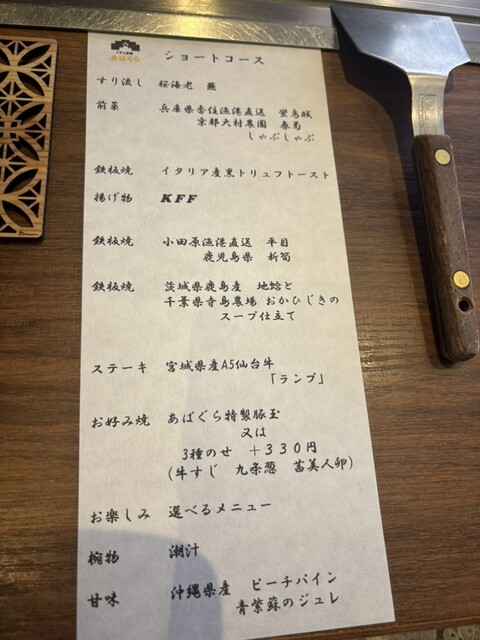 あばぐら
ショートコース
すり流し 桜海老 蕪
前菜 兵庫県香住漁港直送 蛍烏賊
京都大村農園 春菊
しゃぶしゃぶ
鉄板焼 イタリア産黒トリュフトースト
揚げ物 KFF
鉄板焼 小田原漁港直送 平目
鹿児島県 新筍
鉄板焼 茨城県鹿島産 地蛤と
千葉県寺島農場 おかひじきの
スープ仕立て
ステーキ 宮城県産A5仙台牛
「ランプ」
お好み焼 あばぐら特製豚玉
又は
3種のせ +330円
(牛すじ 九条葱 茜美人卵)
お楽しみ 選べるメニュー
椀物 潮汁
甘味 沖縄県産 ピーチパイン
青紫蘇のジュレ